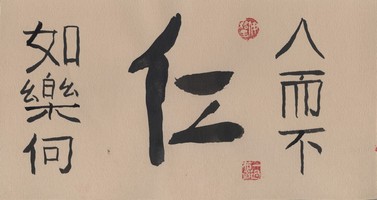 人而不
仁
如樂何